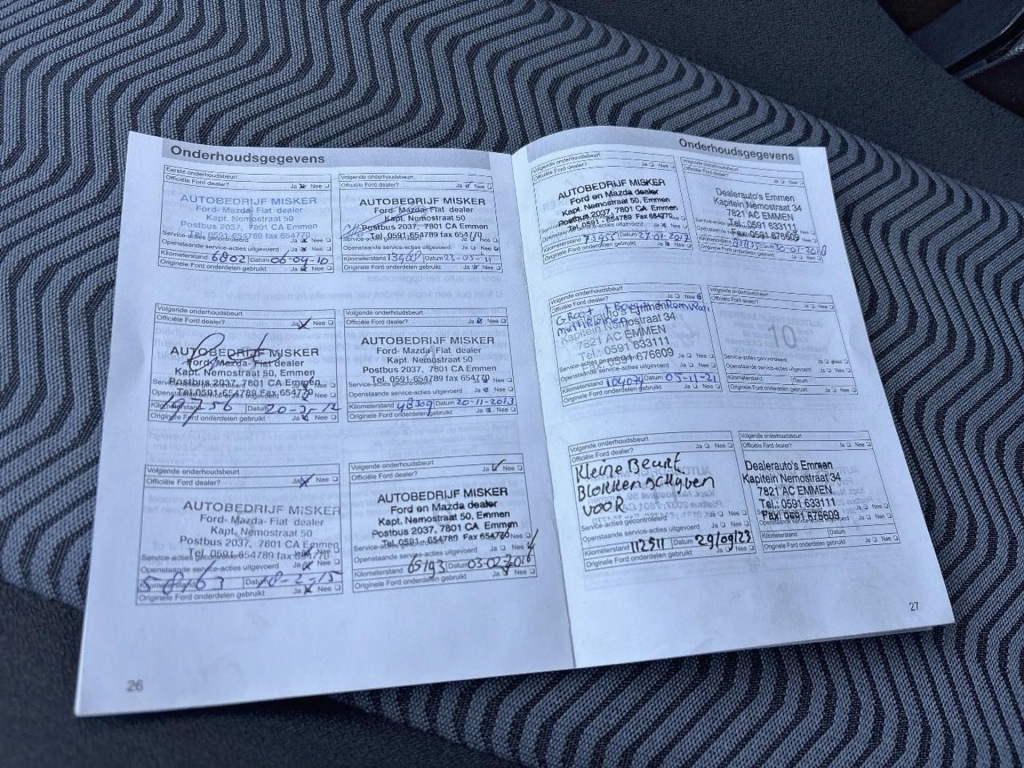 Onderhoudsgegevens
Eerste onderhoudsbeurt
Officiële Ford dealer? Ja Nee
AUTOBEDRIJF MISKER
Ford-Mazda-Fiat dealer
Kapt. Nemostraat 50
Postbus 2037, 7801 CA Emmen
Tel. 0591-654789 fax 654770
Openstaande service-acties uitgevoerd Ja Nee
Kilometerstand 6802 Datum 06-04-10
Originele Ford onderdelen gebruikt Ja Nee
Volgende onderhoudsbeurt
Officiële Ford dealer? Ja Nee
AUTOBEDRIJF MISKER
Ford-Mazda-Fiat dealer
Kapt. Nemostraat 50
Postbus 2037, 7801 CA Emmen
Tel. 0591-654789 fax 654770
Openstaande service-acties uitgevoerd Ja Nee
Kilometerstand Datum 23-05-11
Originele Ford onderdelen gebruikt Ja Nee
Volgende onderhoudsbeurt
Officiële Ford dealer? Ja Nee
AUTOBEDRIJF MISKER
Ford-Mazda-Fiat dealer
Kapt. Nemostraat 50, Emmen
Postbus 2037, 7801 CA Emmen
Tel. 0591-654789 fax 654770
Openstaande
Datum
Originele Ford onderdelen gebruikt Ja Nee
Volgende onderhoudsbeurt
Officiële Ford dealer? Ja Nee
AUTOBEDRIJF MISKER
Ford- Mazda- Fiat dealer
Kapt. Nemostraat 50, Emmen
Postbus 2037, 7801 CA Emmen
Tel. 0591-654789 fax 654770
Openstaande service-acties uitgevoerd Ja Nee
Kilometerstand 48309 Datum 20-11-2013
Originele Ford onderdelen gebruikt Ja Nee
Volgende onderhoudsbeurt
Officiële Ford dealer? Ja Nee
AUTOBEDRIJF MISKER
Ford- Mazda- Fiat dealer
Kapt. Nemostraat 50, Emmen
Postbus 2037, 7801 CA Emmen
Tel. 0591-654789 fax 654770
Openstaande service-acties uitgevoerd Ja Nee
58163 Datum 18-2-15
Originele Ford onderdelen gebruikt Ja Nee
Volgende onderhoudsbeurt
Officiële Ford dealer? Ja Nee
AUTOBEDRIJF MISKER
Ford en Mazda dealer
Kapt. Nemostraat 50, Emmen
Postbus 2037, 7801 CA Emmen
Tel. 0591- 654789 Fax 654770
Openstaande service-acties uitgevoerd Ja Nee
Kilometerstand 65193 Datum 03-02-2016
Originele Ford onderdelen gebruikt Ja Nee
26
Onderhoudsgegevens
Volgende onderhoudsbeurt
Officiële Ford dealer? Ja Nee
AUTOBEDRIJF MISKER
Ford en Mazda dealer
Kapt. Nemostraat 50, Emmen
Postbus 2037, 7801 CA Emmen
Tel. 0591- 654789 Fax 654770
Kilometerstand
Originele Ford onderdelen gebruikt Ja Nee
Volgende onderhoudsbeurt
Officiële Ford dealer? Ja Nee
Dealerauto's Emmen
Kapitein Nemostraat 34
7821 AC EMMEN
Tel.: 0591 633111
Fax: 0591 676609
Originele Ford onderdelen gebruikt Ja Nee
Volgende onderhoudsbeurt
Officiële Ford dealer? Ja Nee
Groot
Kapitein Nemostraat 34
7821 AC EMMEN
Tel.: 0591 633111
0591 676609
Openstaande service-acties uitgevoerd Ja Nee
Kilometerstand Datum 05-11-21
Originele Ford onderdelen gebruikt Ja Nee
Volgende onderhoudsbeurt
Officiële Ford dealer? Ja Nee
Service-acties gecontroleerd
Openstaande service-acties uitgevoerd Ja Nee
Kilometerstand Datum
Originele Ford onderdelen gebruikt Ja Nee
Volgende onderhoudsbeurt
Officiële Ford dealer? Ja Nee
Kleine Beurt
Blokken schijven
VOOR
Service-acties gecontroleerd Ja Nee
Openstaande service-acties uitgevoerd Ja Nee
Kilometerstand 112511 Datum 29/09/23
Originele Ford onderdelen gebruikt Ja Nee
Volgende onderhoudsbeurt
Officiële Ford dealer? Ja Nee
Dealerauto's Emmen
Kapitein Nemostraat 34
7821 AC EMMEN
Tel.: 0591 633111
Fax: 0591 676609
Openstaande service-acties uitgevoerd Ja Nee
Kilometerstand Datum
Originele Ford onderdelen gebruikt Ja Nee
27